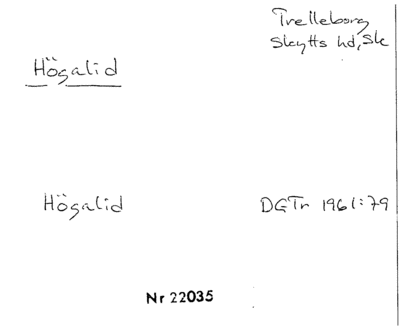 Trelleborg
Skytts hd, Sk
Högalid
Högalid
DGTr 1961:79
Nr 22035